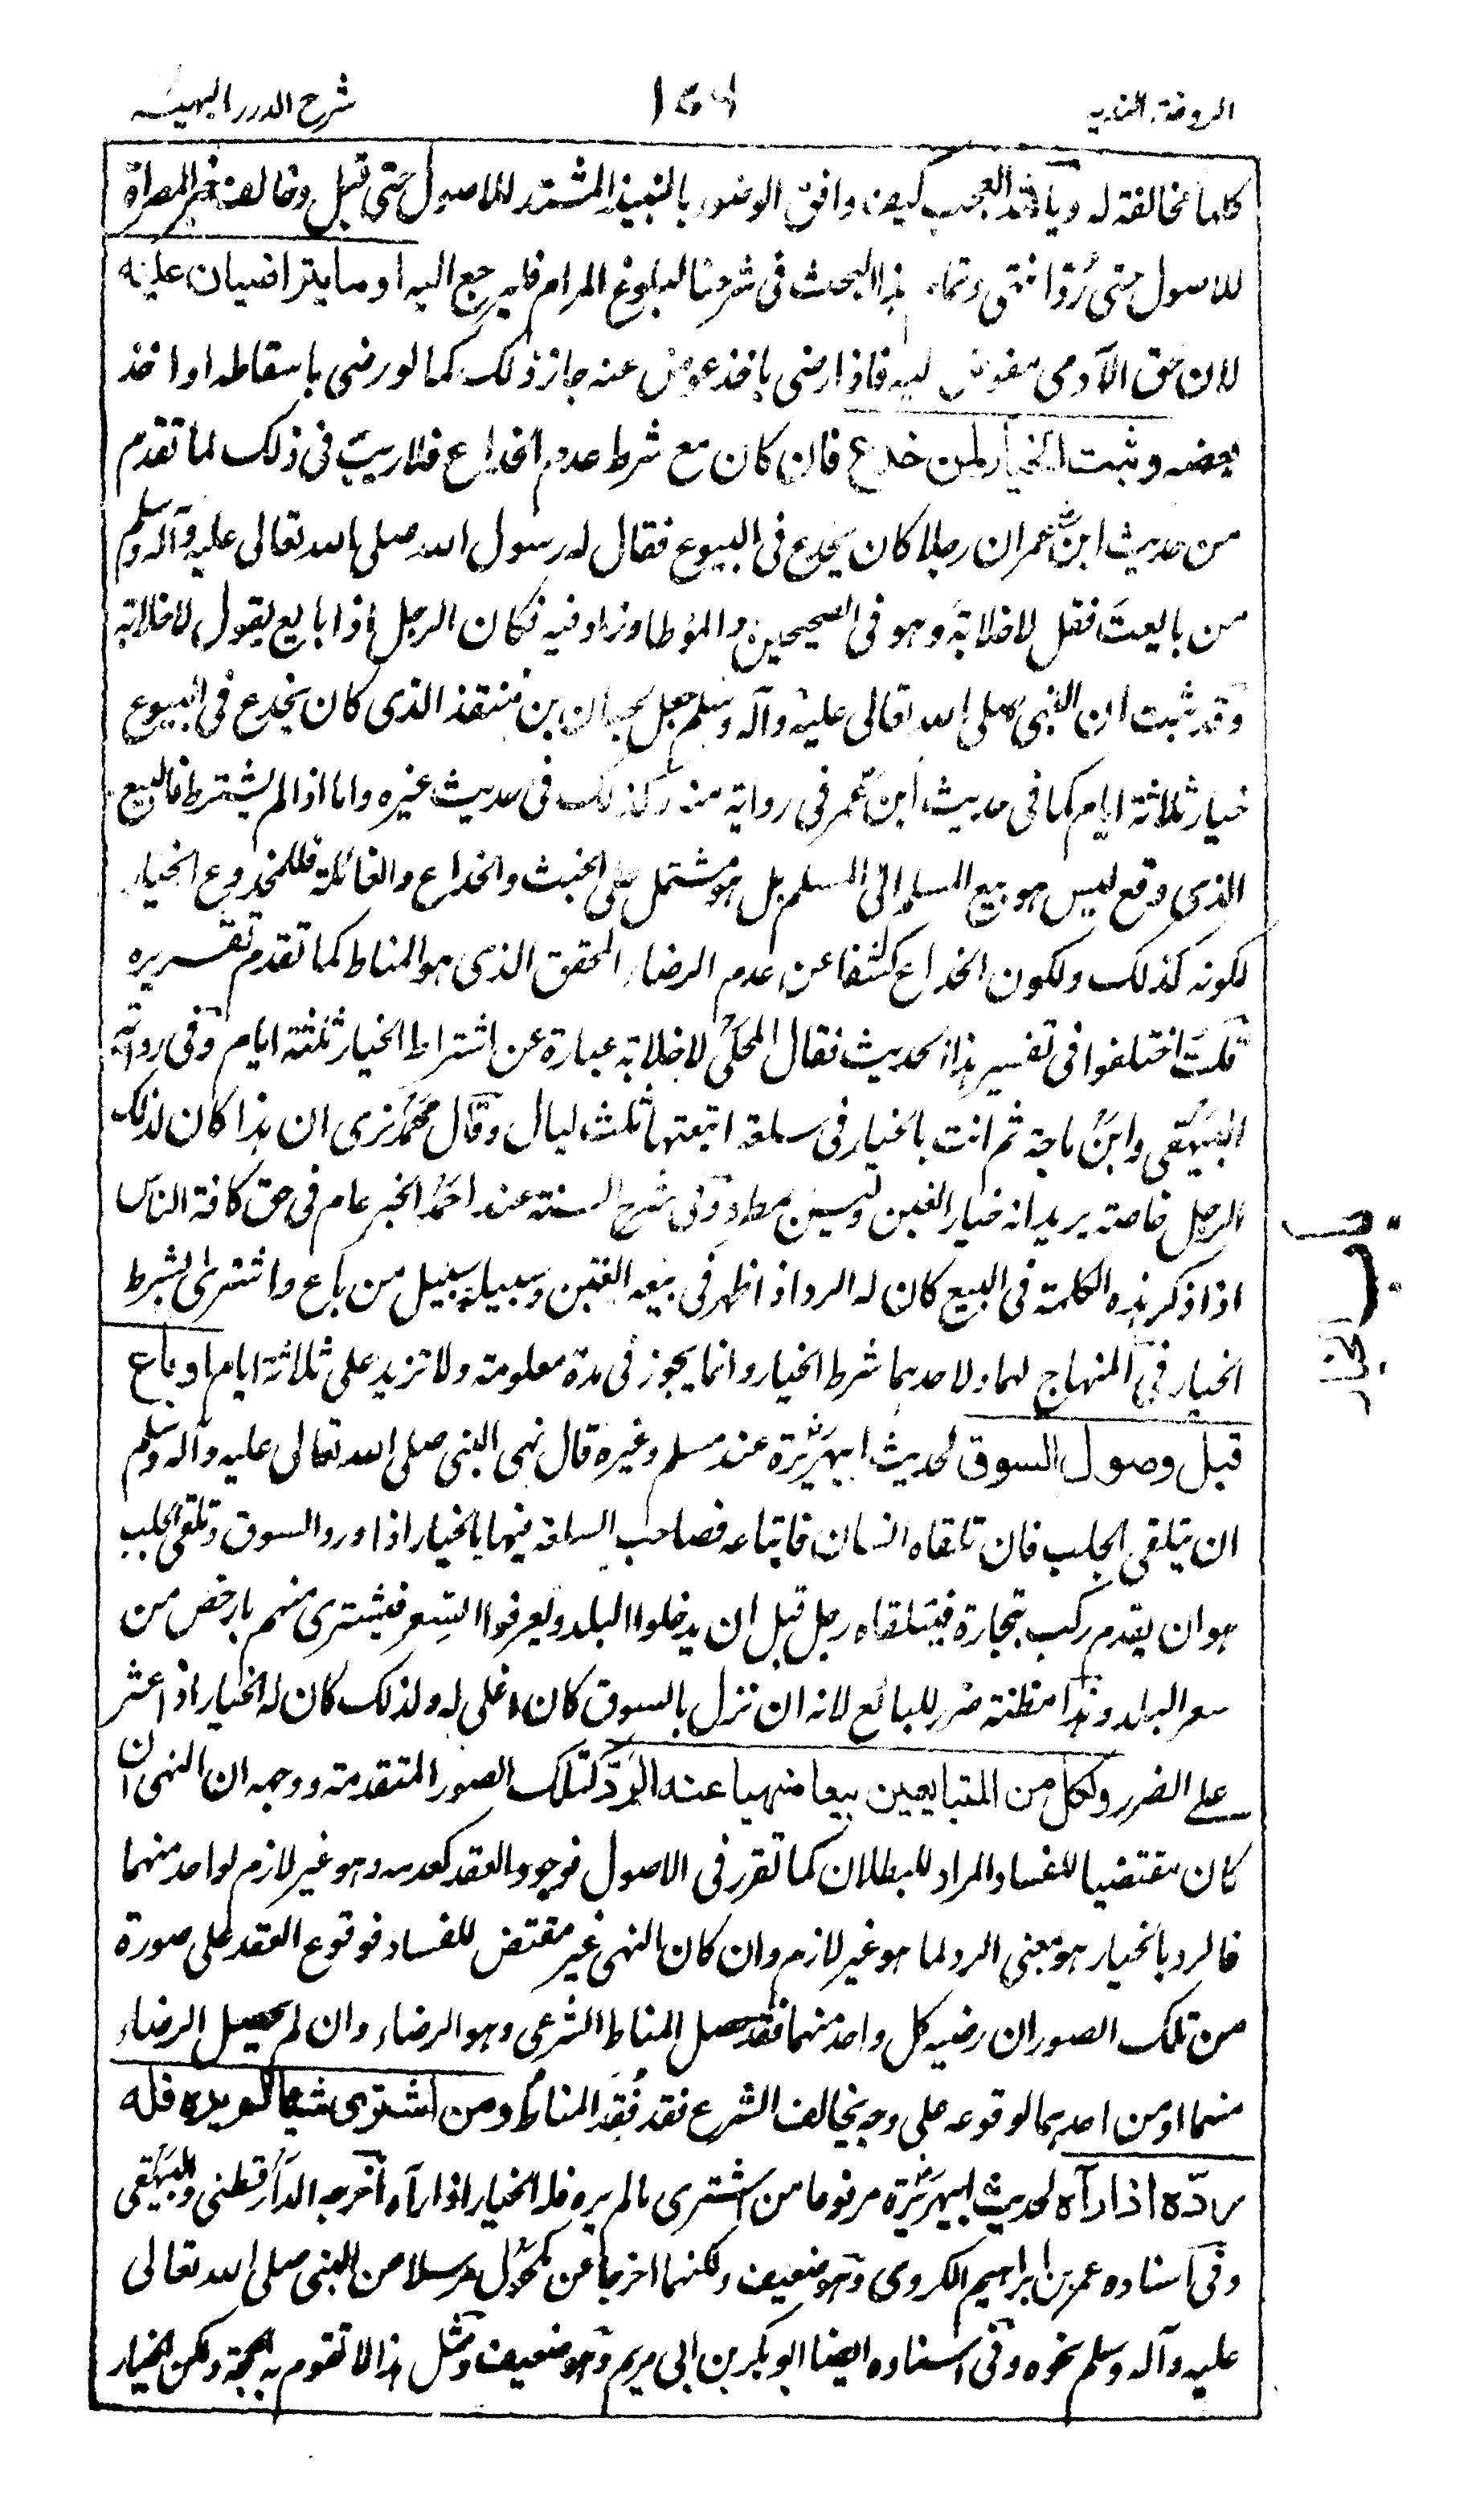 الروضة الندية
شرح الدرر البهية
كلها مخالفة له ويا لله العجب كيف وافق الوضوء بالنبيذ المشتد للاصول حتى قبل وخالف خبر المصراة
للاصول حتى رد انتهى وتمام هذا البحث في شرحنا لبلوغ المرام فليرجع اليه او ما يتراضيان عليه
لان حق الآدمي مفوض اليه فاذا رضي باخذ عوض عنه جاز ذلك كما لو رضي باسقاطه او اخذ
بعضه وثبت الخيار لمن خدع فان كان مع شرط عدم الخداع فلا ريب في ذلك لما تقدم
من حديث ابن عمر ان رجلا كان يخدع في البيوع فقال له رسول الله صلى الله تعالى عليه وآله وسلم
من بايعت فقل لا خلابة وهو في الصحيحين والموطا وزاد فيه فكان الرجل اذا بايع يقول لا خلابة
وقد ثبت ان النبي صلى الله تعالى عليه وآله وسلم جعل لحبان بن منقذ الذي كان يخدع في البيوع
خيار ثلاثة ايام كما في حديث ابن عمر في رواية منه وكذلك في حديث غيره واما اذا لم يشترط فالبيع
الذي وقع ليس هو بيع المسلم الى المسلم بل هو مشتمل على الخبث والخداع والغائلة فللمخدوع الخيار
لكونه كذلك ولكون الخداع كشفا عن عدم الرضاء المحقق الذي هو المناط كما تقدم تقريره
قلت اختلفوا في تفسير هذا الحديث فقال المحلي لا خلابة عبارة عن اشتراط الخيار ثلثة ايام وفي رواية
البيهقي وابن ماجة ثم انت بالخيار في سلعة ابتعتها ثلث ليال وقال محمد نرى ان هذا كان لذلك
الرجل خاصة يريد انه خيار الغبن وليس بمطرد وفي شرح السنة عند احمد الخبر عام في حق كافة الناس
اذا ذكر هذه الكلمة في البيع كان له الرد اذا ظهر في بيعه الغبن وسبيله سبيل من باع واشترى بشرط
الخيار في المنهاج لهما ولاحدهما شرط الخيار وانما يجوز في مدة معلومة ولا تزيد على ثلاثة ايام او باع
باب الخيار
قبل وصول السوق لحديث ابي هريرة عند مسلم وغيره قال نهى النبي صلى الله تعالى عليه وآله وسلم
ان يتلقى الجلب فان تلقاه انسان فابتاعه فصاحب السلعة فيها بالخيار اذا ورد السوق وتلقي الجلب
هو ان يقدم ركب بتجارة فيتلقاه رجل قبل ان يدخلوا البلد ويعرفوا السعر فيشترى منهم بارخص من
سعر البلد وهذا مظنة ضرر للبائع لانه ان نزل بالسوق كان اغلى له ولذلك كان له الخيار اذا عثر
على الضرر ولكل من المتبايعين بيعا منهيا عنه الرد كتلك الصور المتقدمة ووجهه ان النهي ان
كان مقتضيا للفساد المراد للبطلان كما تقرر في الاصول فوجود العقد كعدمه وهو غير لازم لواحد منهما
فالرد بالخيار هو بمعنى الرد لما هو غير لازم وان كان النهي غير مقتض للفساد فوقوع العقد على صورة
من تلك الصور ان رضيه كل واحد منهما فقد حصل المناط الشرعي وهو الرضاء وان لم يحصل الرضاء
منهما او من احدهما لوقوعه على وجه يخالف الشرع فقد فُقِد المناط ومن اشترى شيئا لم يره فله
رده اذا رآه لحديث ابي هريرة مرفوعا من اشترى ما لم يره فله الخيار اذا رآه اخرجه الدارقطني والبيهقي
وفي اسناده عمر بن ابراهيم الكردي وهو ضعيف ولكنهما اخرجا عن مكحول مرسلا عن النبي صلى الله تعالى
عليه وآله وسلم نحوه وفي اسناده ايضا ابو بكر بن ابي مريم وهو ضعيف ومثل هذا لا تقوم به الحجة ولكن الخيار